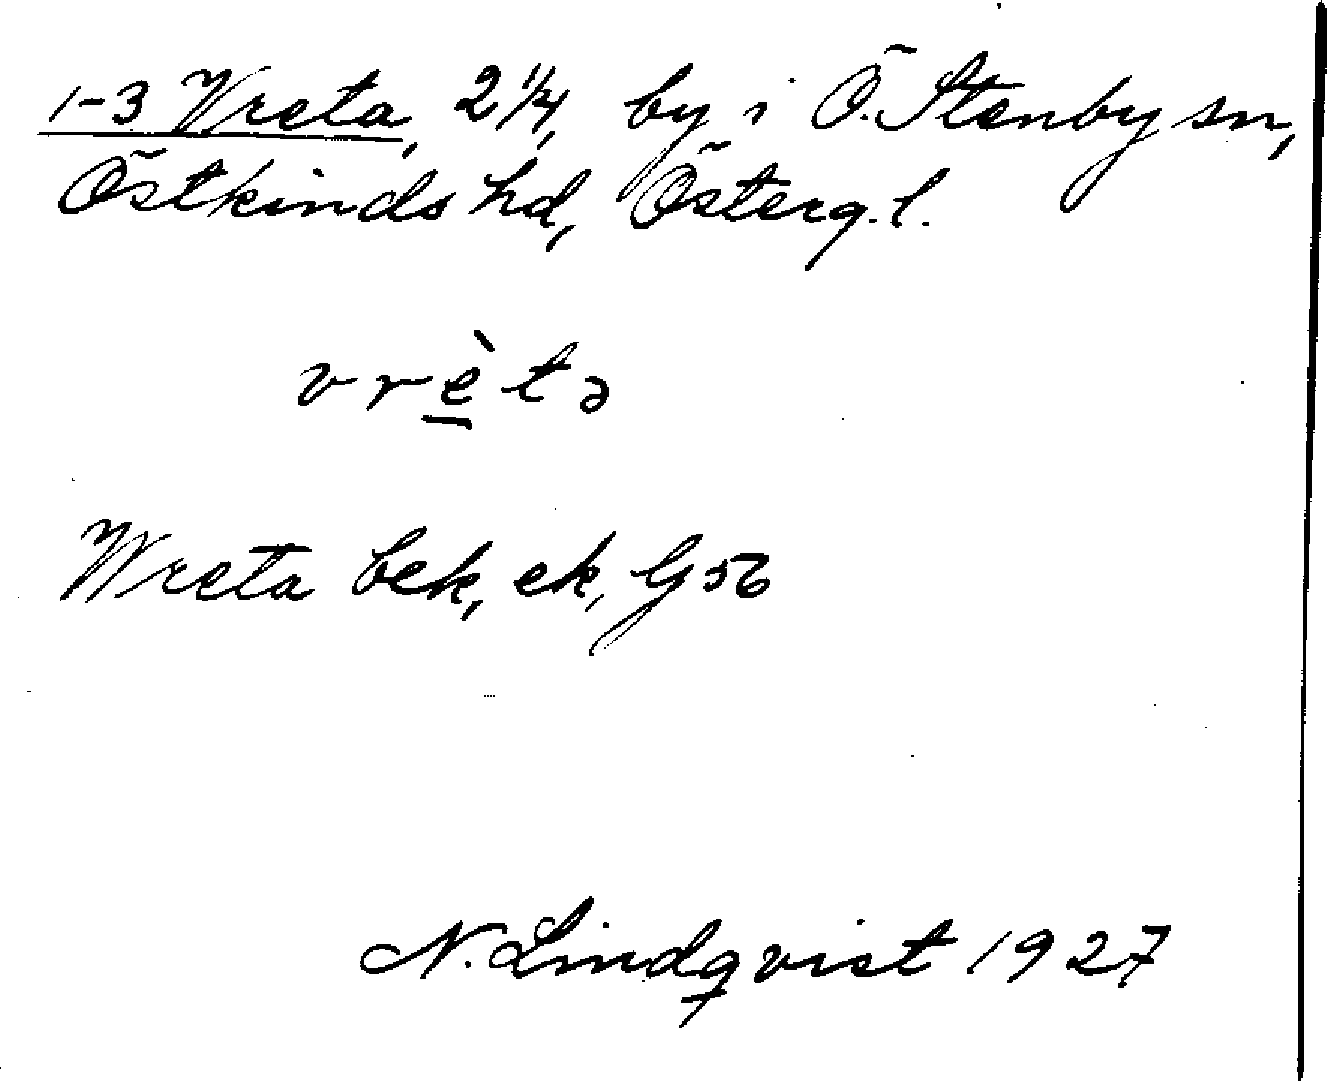 1-3 Vreta, 2 1/4, by i Ö. Stenby sn,
Östkinds hd, Österg. l.
vrètə
Wreta bek, ek, G 56
N. Lindqvist 1927